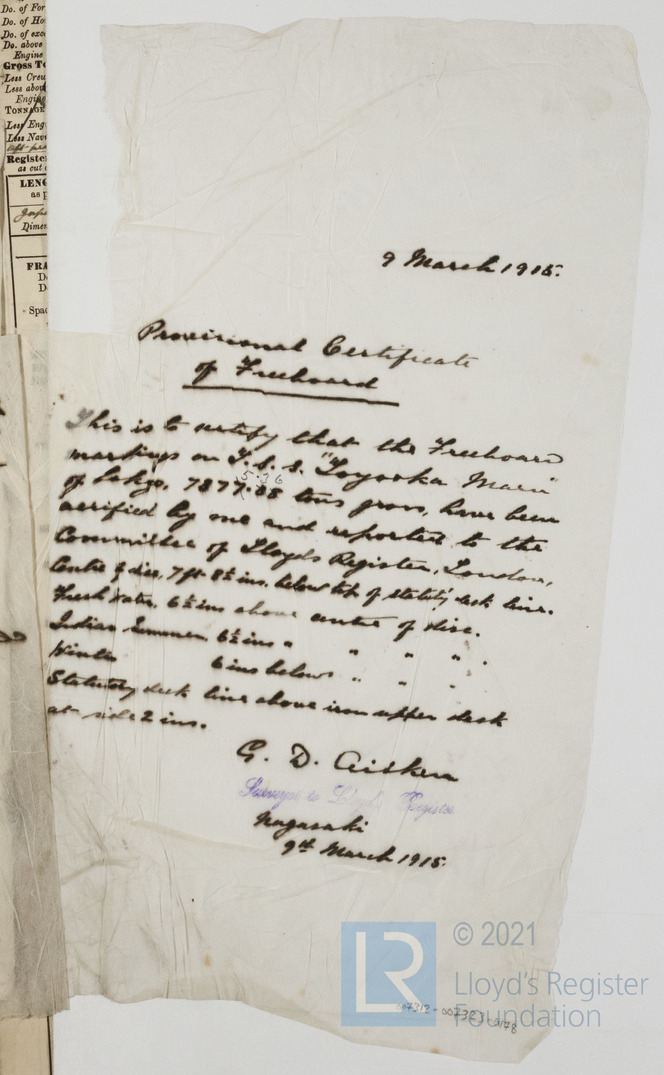 Do. of For
Do. of Ho
Do. of exc
Do. above
Engine
GROSS TO
Less Crew
Less abov
Engine
TONNAGE
Less Eng
Less Navi
Register
as cut o
LENG
as p
Dimen
FRA
D
D
Spac
9 March 1915.
Provisional Certificate
of Freeboard
This is to certify that the Freeboard
markings on T.S.S. "Toyooka Maru"
of 7377.88 tons gross, have been
verified by me and reported to the
Committee of Lloyds Register, London,
Centre of disc, 7 ft 8½ ins. below top of statut'y deck line.
Fresh water, 6½ ins above centre of disc.
Indian Summer, 6½ ins " " " " .
Winter 6 ins below " " "
Statutory deck line above iron upper deck
at side 2 ins.
G. D. Aitken
Surveyor to Lloyd's Register
Nagasaki
9th March 1915.
LR
© 2021
Lloyd's Register
Foundation
007312-007323-0178